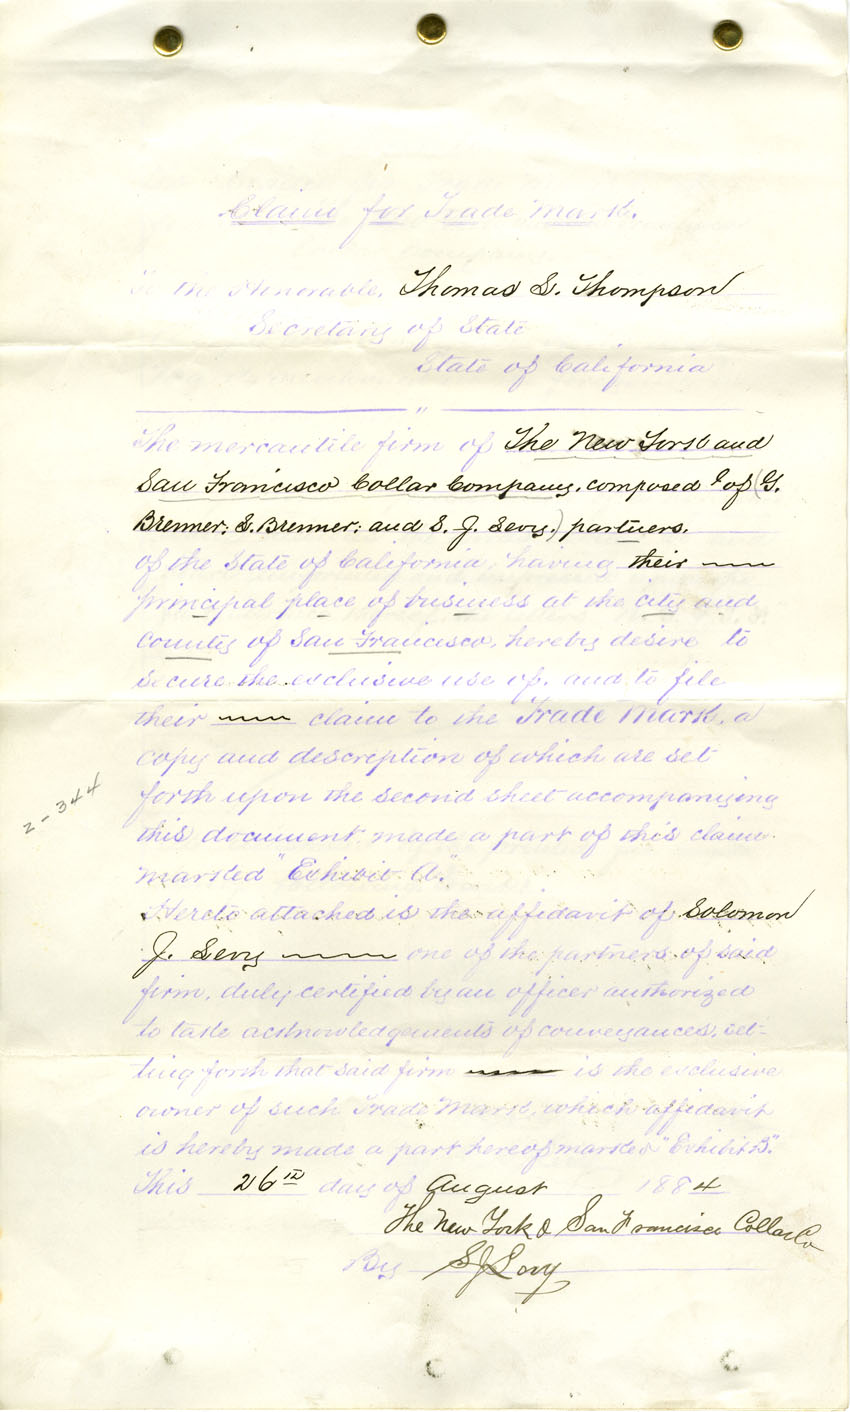 Claim for Trade Mark.
To the Honorable, Thomas L. Thompson
Secretary of State
State of California
The mercantile firm of The New York and
San Francisco Collar Company, composed of (G.
Brenner; S. Brenner; and S. J. Levy,) partners,
of the State of California, having their
principal place of business at the city and
County of San Francisco, hereby desire to
secure the exclusive use of, and to file
their claim to the Trade Mark, a
copy and description of which are set
forth upon the second sheet accompanying
this document, made a part of this claim
marked "Exhibit A."
Hereto attached is the affidavit of Solomon
J. Levy one of the partners of said
firm, duly certified by an officer authorized
to take acknowledgements of conveyances, set-
ting forth that said firm is the exclusive
owner of such Trade Mark, which affidavit
is hereby made a part hereof marked "Exhibit B".
This 26th day of August 1884
The New York & San Francisco Collar Co
By S J Levy
2-344